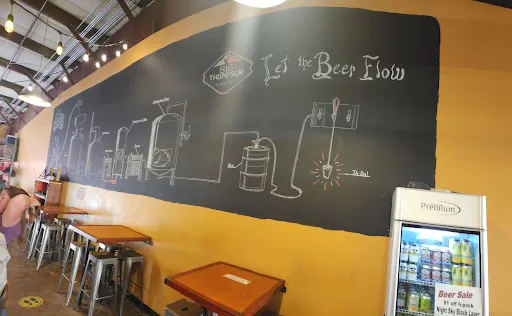 BIG
THOMPSON
Let the Beer Flow
Premium
Beer Sale
$1 off 6-pack
Night Sky Black Lager